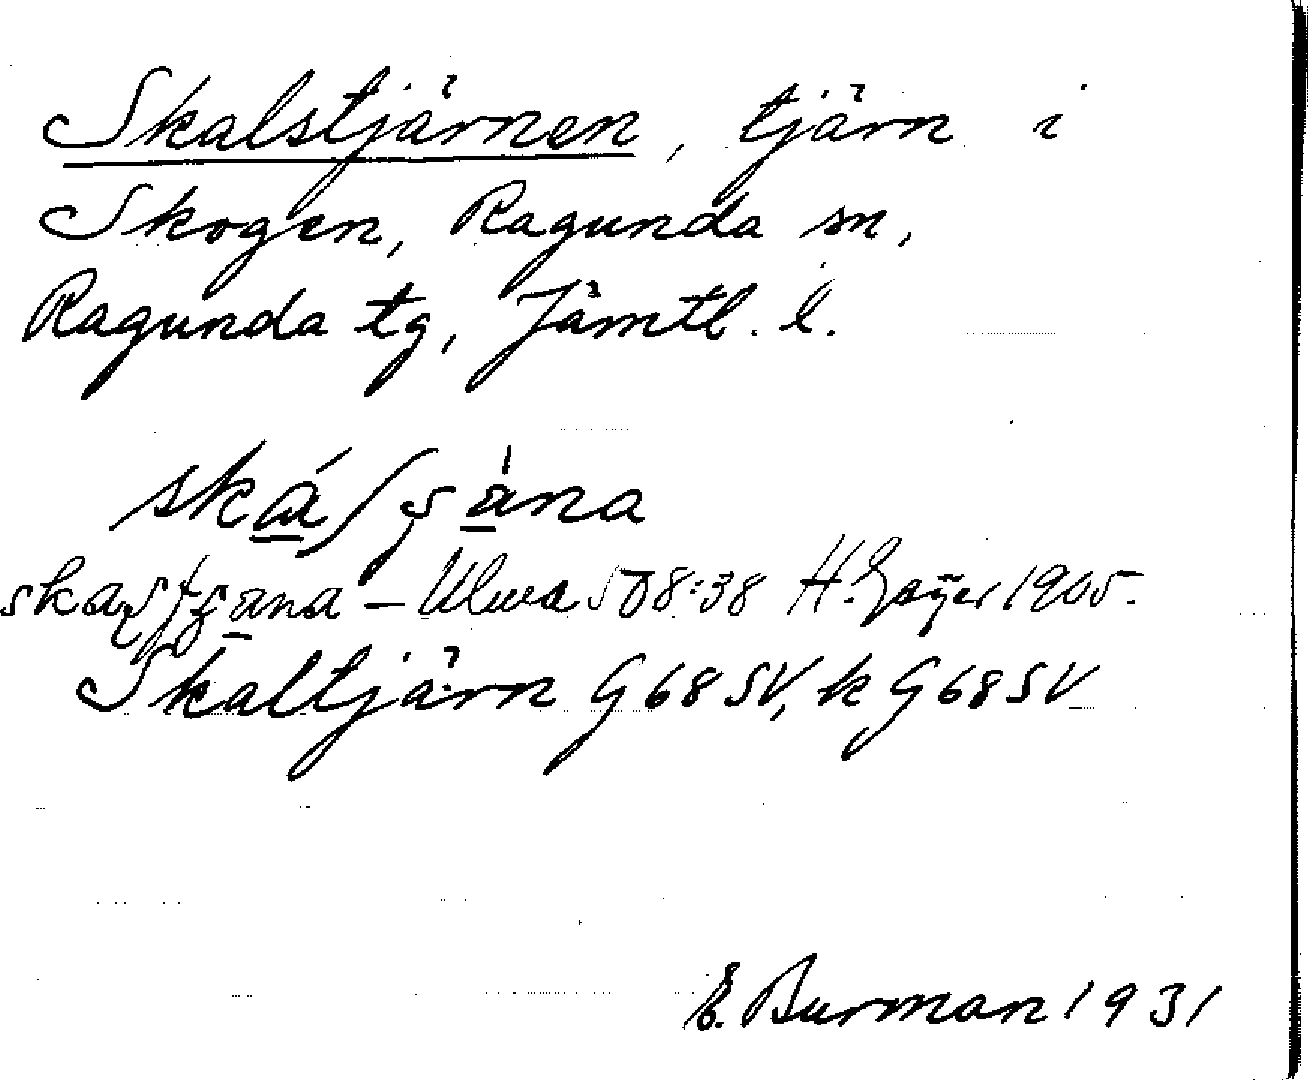 Skalstjärnen, tjärn i
Skogen, Ragunda sn,
Ragunda tg, Jämtl. l.
– Ulma 508:38 H. Geijer 1905.
Skaltjärn G68SV, k G68SV
E. Burman 1931